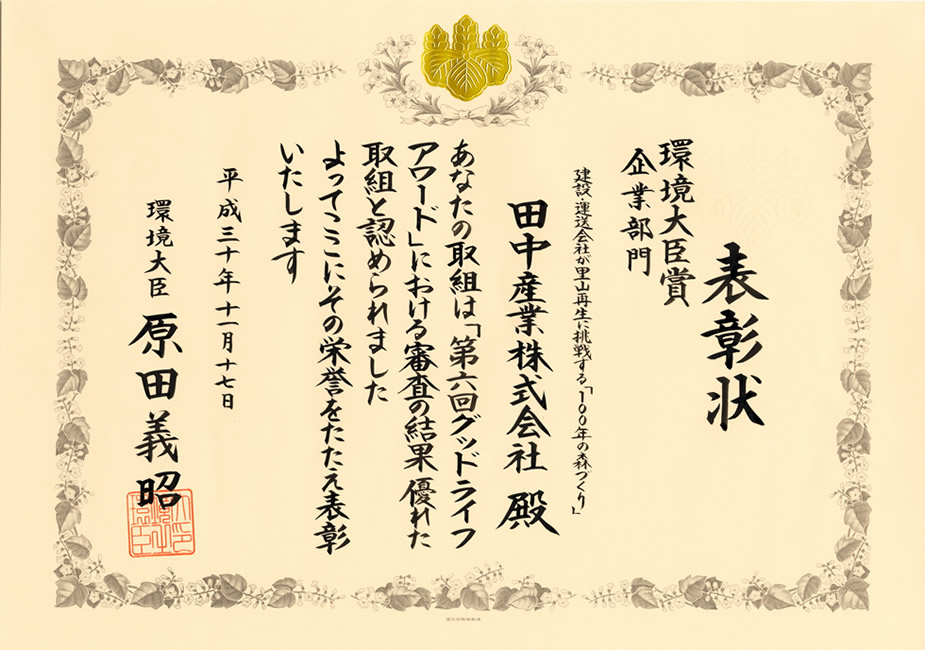 表彰状
環境大臣賞
企業部門
建設・運送会社が里山再生に挑戦する「100年の森づくり」
田中産業株式会社 殿
あなたの取組は「第六回グッドライフ
アワード」における審査の結果優れた
取組と認められました
よってここにその栄誉をたたえ表彰
いたします
平成三十年十一月十七日
環境大臣 原田義昭